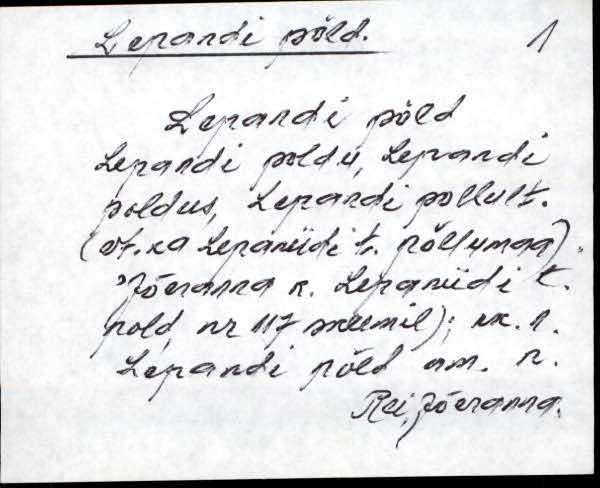 Lepandi põld.
1
Lepandi põld
Lepandi põldu, Lepandi
põldus, Lepandi põllult.
(vt. ka Lepaniidi t. põllumaa).
Jõeranna k. Lepaniidi t.
põld, nr 117 skeemil); kk. n.
Lepandi põld am. n.
Rei, Jõeranna.